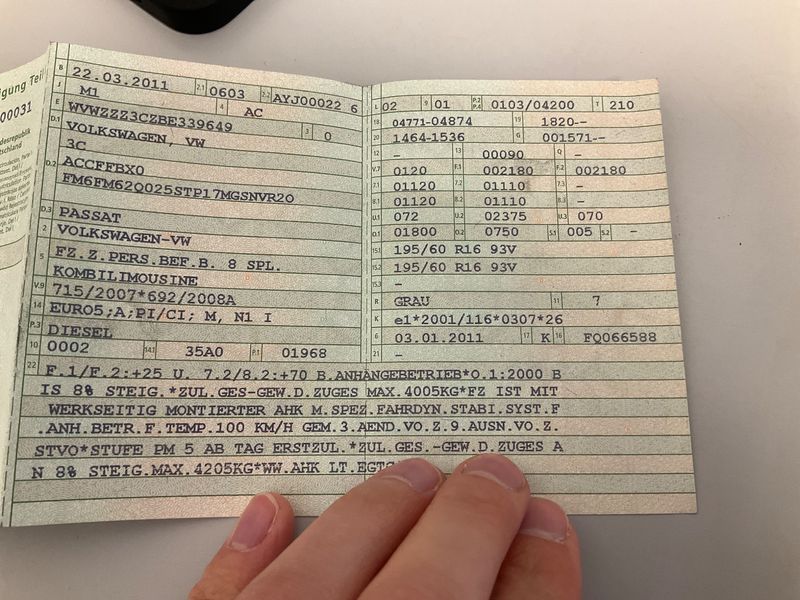 igung Teil
00031
desrepublik
tschland
B 22.03.2011 2.1 0603 2.2 AYJ00022 6
J M1 4 AC
E WVWZZZ3CZBE339649 3 0
D.1 VOLKSWAGEN, VW
3C
D.2 ACCFFBX0
FM6FM62Q025STP17MGSNVR2O
D.3 PASSAT
2 VOLKSWAGEN-VW
5 FZ.Z.PERS.BEF.B. 8 SPL.
KOMBILIMOUSINE
V.9 715/2007*692/2008A
14 EURO5;A;PI/CI; M, N1 I
P.3 DIESEL
10 0002 14.1 35A0 P.1 01968
L 02 9 01 P.2 P.4 0103/04200 T 210
18 04771-04874 19 1820--
20 1464-1536 G 001571--
12 - 13 00090 Q -
V.7 0120 F.1 002180 F.2 002180
7.1 01120 7.2 01110 7.3 -
8.1 01120 8.2 01110 8.3 -
U.1 072 U.2 02375 U.3 070
O.1 01800 O.2 0750 S.1 005 S.2 -
15.1 195/60 R16 93V
15.2 195/60 R16 93V
15.3 -
R GRAU 11 7
K e1*2001/116*0307*26
6 03.01.2011 17 K 16 FQ066588
21 -
22 F.1/F.2:+25 U. 7.2/8.2:+70 B.ANHÄNGEBETRIEB*O.1:2000 B
IS 8% STEIG.*ZUL.GES-GEW.D.ZUGES MAX.4005KG*FZ IST MIT
WERKSEITIG MONTIERTER AHK M.SPEZ.FAHRDYN.STABI.SYST.F
.ANH.BETR.F.TEMP.100 KM/H GEM.3.AEND.VO.Z.9.AUSN.VO.Z.
STVO*STUFE PM 5 AB TAG ERSTZUL.*ZUL.GES.-GEW.D.ZUGES A
N 8% STEIG.MAX.4205KG*WW.AHK LT.EGTG